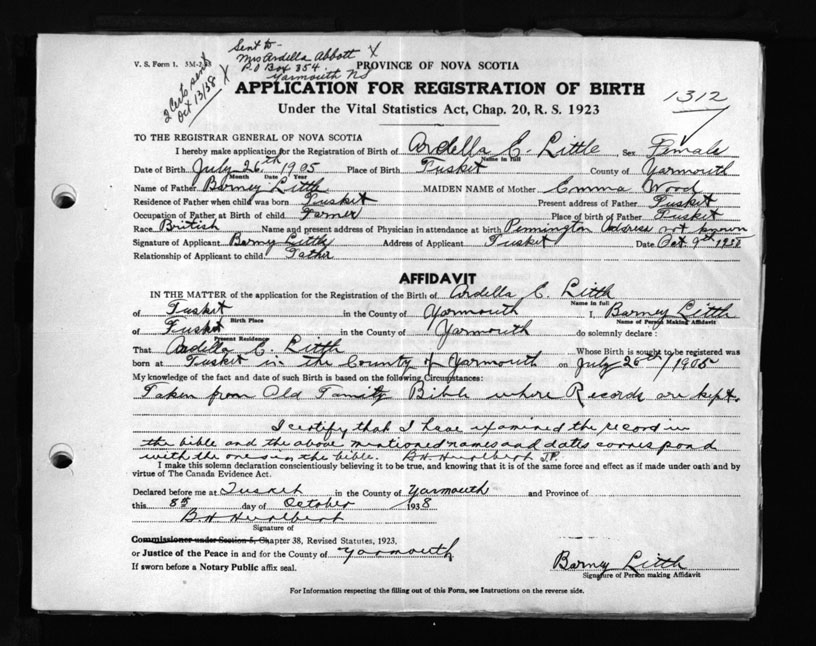 V. S. Form 1. 5M-
Sent to -
Mrs Ardella Abbott X
P.O Box 354
Yarmouth NS
2 Certs sent
Oct 13/38 X
PROVINCE OF NOVA SCOTIA
APPLICATION FOR REGISTRATION OF BIRTH
Under the Vital Statistics Act, Chap. 20, R. S. 1923
1312
TO THE REGISTRAR GENERAL OF NOVA SCOTIA
I hereby make application for the Registration of Birth of Ardella C. Little, Sex Female
Name in full
Date of Birth July 26th 1905 Place of Birth Tusket County of Yarmouth
Month Date Year
Name of Father Barney Little MAIDEN NAME of Mother Emma Wood
Residence of Father when child was born Tusket Present address of Father Tusket
Occupation of Father at Birth of child Farmer Place of birth of Father Tusket
Race British Name and present address of Physician in attendance at birth Pennington Address not known
Signature of Applicant Barny Little Address of Applicant Tusket Date Oct 9th 1938
Relationship of Applicant to child Father
AFFIDAVIT
IN THE MATTER of the application for the Registration of the Birth of Ardella C. Little
Name in full
of Tusket in the County of Yarmouth I, Barney Little
Birth Place Name of Person Making Affidavit
of Tusket in the County of Yarmouth do solemnly declare :
Present Residence
That Ardella C. Little Whose Birth is sought to be registered was
born at Tusket in the County of Yarmouth on July 26th/1905
My knowledge of the fact and date of such Birth is based on the following Circumstances:
Taken from Old Family Bible where Records are kept.
I certify that I have examined the record in
the bible and the above mentioned names and dates correspond
with the ones in the bible. B.H. Hurlbert J.P.
I make this solemn declaration conscientiously believing it to be true, and knowing that it is of the same force and effect as if made under oath and by
virtue of The Canada Evidence Act.
Declared before me at Tusket in the County of Yarmouth and Province of
this 8th day of October 1938
B. H. Hurlbert
Signature of
Commissioner under Section 5, Chapter 38, Revised Statutes, 1923,
or Justice of the Peace in and for the County of Yarmouth
If sworn before a Notary Public affix seal.
Barney Little
Signature of Person making Affidavit
For Information respecting the filling out of this Form, see Instructions on the reverse side.